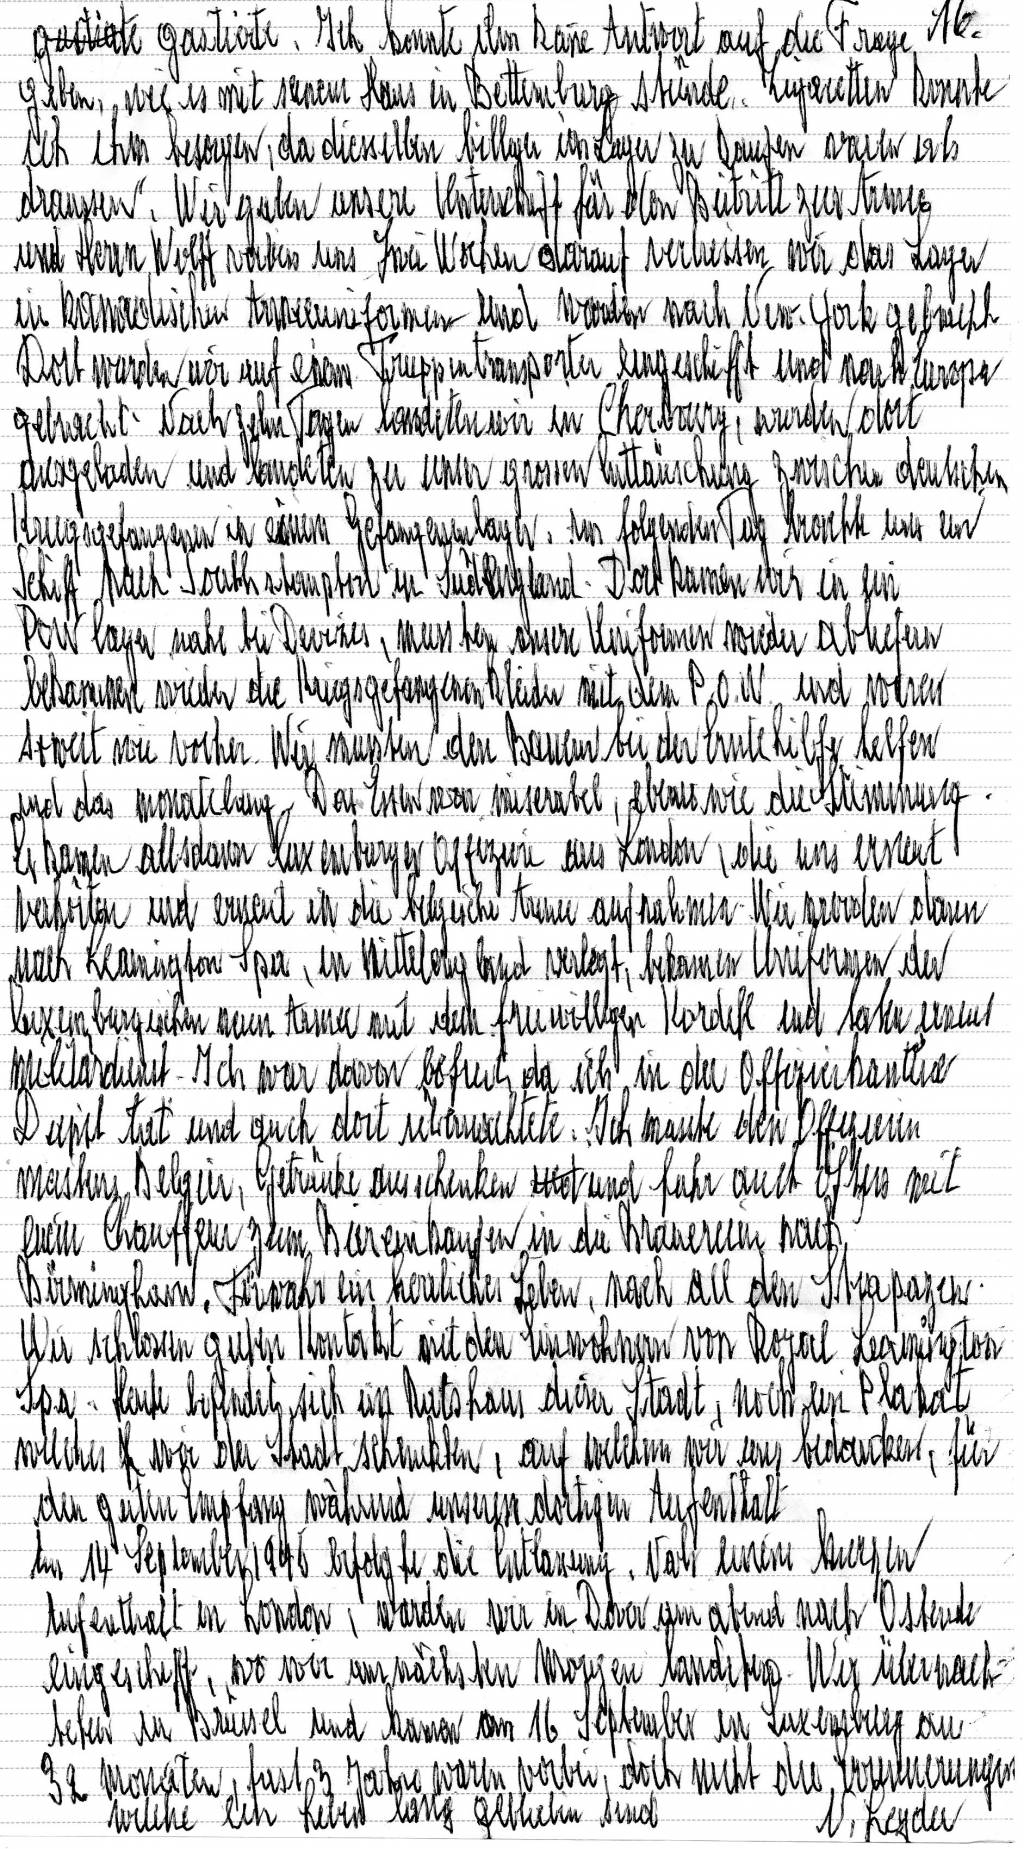 gastierte. Ich konnte ihm keine Antwort auf die Frage 16.
geben, wie es mit seinem Haus in Bettemburg stünde. Zigaretten konnte
ich ihm besorgen, da diesselben billiger im Lager zu kaufen waren als
draussen". Wir gaben unsere Unterschrift für den Beitritt zur Armee
und Herrn Wolff uns Zwei Wochen darauf verliessen wir das Lager
in kanadischen Armeeuniformen und wurden nach New-York gebracht
Dort wurden wir auf einem Truppentransporter eingeschifft und nach Europa
gebracht. Nach zehn Tagen landeten wir in Cherbourg, wurden dort
ausgeladen und landeten zu unser grossen Enttäuschung zwischen deutschen
Kriegsgefangenen in einem Gefangenenlager. Am folgenden Tag brachte uns ein
Schiff nach Southshampton in Südengland. Dort kamen wir in ein
POW lager nahe bei Devizes, mussten unsere Uniformen wieder abliefern
bekammen wieder die Kriegsgefangenenkleider mit dem P.O.W. und waren
soweit wie vorher. Wir mussten den Bauern bei der Erntehilfe helfen
und das monatelang. Das Essen war miserabel, ebenso wie die Stimmung.
Es kamen allsdann Luxemburger Offiziere aus London, die uns erneut
verhörten und erneut in die belgische Armee aufnahmen. Wir wurden dann
nach Leamington Spa, in Mittelengland verlegt, bekamen Uniformen der
luxemburgischen neuen Armee mit dem freiwilligen Kordell und taten erneut
Militärdienst. Ich war davon befreit, da ich in der Offizierkantine
Dienst tat und auch dort übernachtete. Ich musste den Offizieren
meistens Belgier, Getränke ausschenken und fuhr auch öfters mit
einem Chauffeur zum Biereinkaufen in die Brauereien nach
Birmingham. Fürwahr ein herrliches Leben, nach all den Strapazen.
Wir schlossen guten Kontakt mit den Einwohnern von Royal Leamington
Spa. Heute befindet sich im Rathaus dieser Stadt, noch ein Plakat
welches wir der Stadt schenkten, auf welchem wir uns bedanken, für
den guten Empfang während unserem dortigen Aufenthalt
Am 14 September 1945 erfolgte die Entlassung. Nach einem kurzen
Aufenthalt in London, wurden wir in Dover am abend nach Ostende
eingeschifft, wo wir am nächsten Morgen landeten. Wir übernach-
teten in Brüssel und kamen am 16 September in Luxemburg an
32 Monaten, fast 3 Jahre waren vorbei, doch nicht die Errinnerungen
welche ein Leben lang geblieben sind N. Leyder